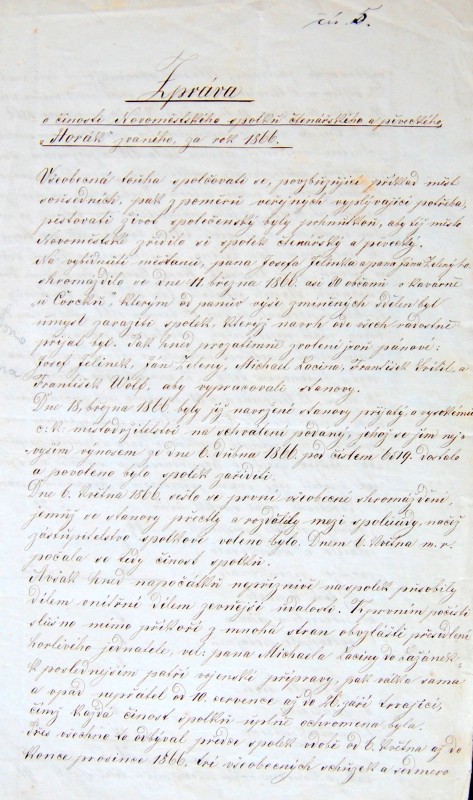 čís. 5.
Zpráva
o činosti Novoměstského spolku čtenářského a pěveckého,
„Horák" zvaného, za rok 1866.
Všeobecná touha spolčovati se, povzbuzující příklad měst
sousedních, pak z poměrů veřejných vyplývající potřeba,
pěstovati život společenský byly pohnutkou, aby též město
Novoměstské zřídilo si spolek čtenářský a pěvecký.
Na vybídnutí měšťanů, pana Josefa Jelínka a pana Jána Zeleny ho
shromáždilo se dne 11 března 1866 asi 80 občanů v kavárně
u kterým od panův výše zmíněných sdělen byl
úmysl zaraziti spolek, kterýž návrh ode všech radostně
přijat byl. Tak hned prozatemně zvoleni jsou pánové:
Josef Jelínek, Ján Zeleny, Michael Lacina, František a
František Wolf, aby vypracovali stanovy.
Dne 18. března 1866 byly již navržené stanovy přijaty a vysokému
c. k. místodržitelství na schválení podány, jehož se jim nej-
vyšším výnosem ze dne 6. dubna 1866 pod číslem dostalo
a povoleno bylo spolek zaříditi.
Dne 6. května 1866 sešlo se první všeobecné shromáždění,
jemuž se stanovy přečtly a rozdělily mezi spoluúdy, načež
zástupitelstvo spolkové voleno bylo. Dnem 6. května m. r.
počala se tedy činost spolku.
Avšak hned na počátku nepříznivě na spolek působily
dílem vnitřní dílem zevnější události. K prvním počísti
slušno mimo příkoří z mnohá stran obzvláště přesídlení
horlivého jednatele, vel: pana Michaela Laciny do
k poslednějším patří vojenské přípravy, pak válka sama
a vpád nepřátel od 10. července až do září trvající,
čímž každá činost spolku úplně ochromena byla.
Přes všechno to odbýval předce spolek v době od 6. května až do
konce prosince 1866. tří všeobecných schůzek a sedmero